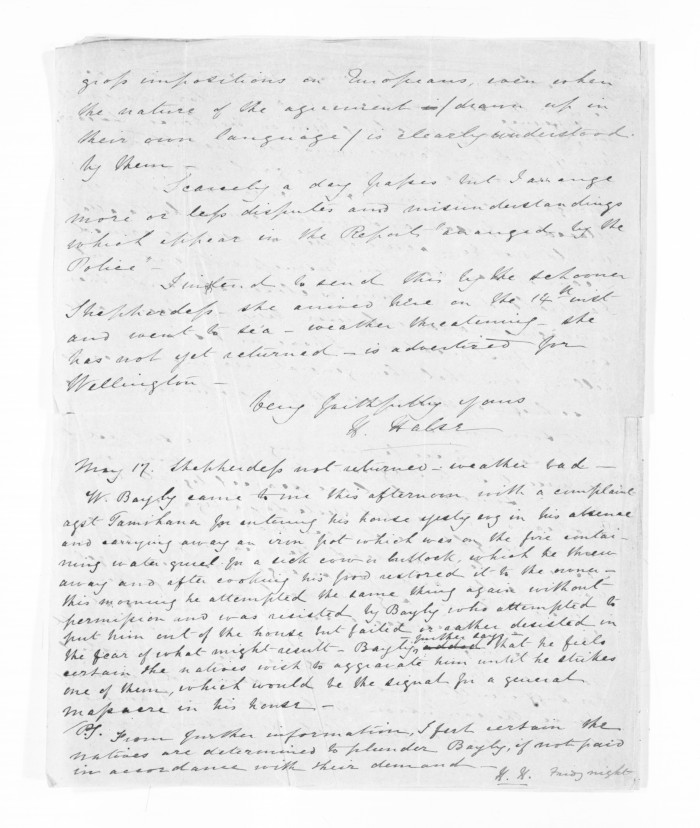 gross impositions on Europeans, even when
the nature of the agreement /drawn up in
their own language/ is clearly understood
by them -
Scarcely a day passes but I arrange
more or less disputes and misunderstandings
which appear in the Report "arranged by the
Police" -
I intend to send this by the schooner
Shepherdess - she arrived here on the 14th inst
and went to sea - weather threatening - she
has not yet returned - is advertized for
Wellington -
Very faithfully yours
H. Halse
May 17. Shepherdess not returned - weather bad -
W. Bayly came to me this afternoon with a complaint
agst Tamihana for entering his house yesty evg in his absence
and carrying away an iron pot which was on the fire contai-
ning water gruel for a sick cow or bullock, which he threw
away and after cooking his food restored it to the owner -
this morning he attempted the same thing again without
permission and was resisted by Bayly who attempted to
put him out of the house but failed or rather desisted in
the fear of what might result - Bayly further says that he feels
certain the natives wish to aggravate him until he strikes
one of them, which would be the signal for a general
massacre in his house -
PS. From further information, I feel certain the
natives are determined to plunder Bayly, if not paid
in accordance with their demand -
H. H. night